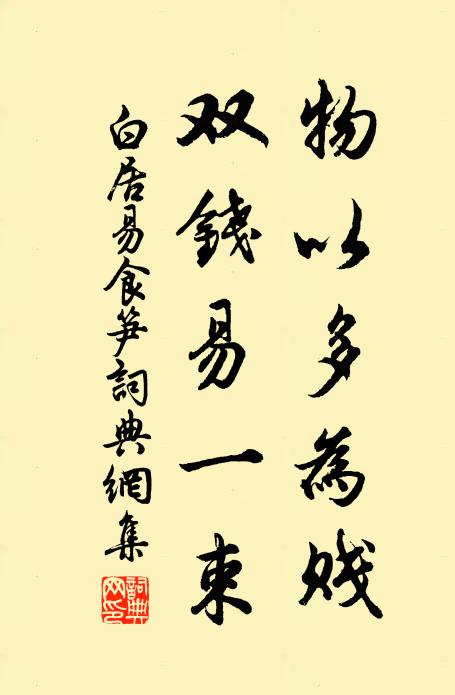 物以多為賤
双錢易一束
白居易食笋詞典網集
詞典网印